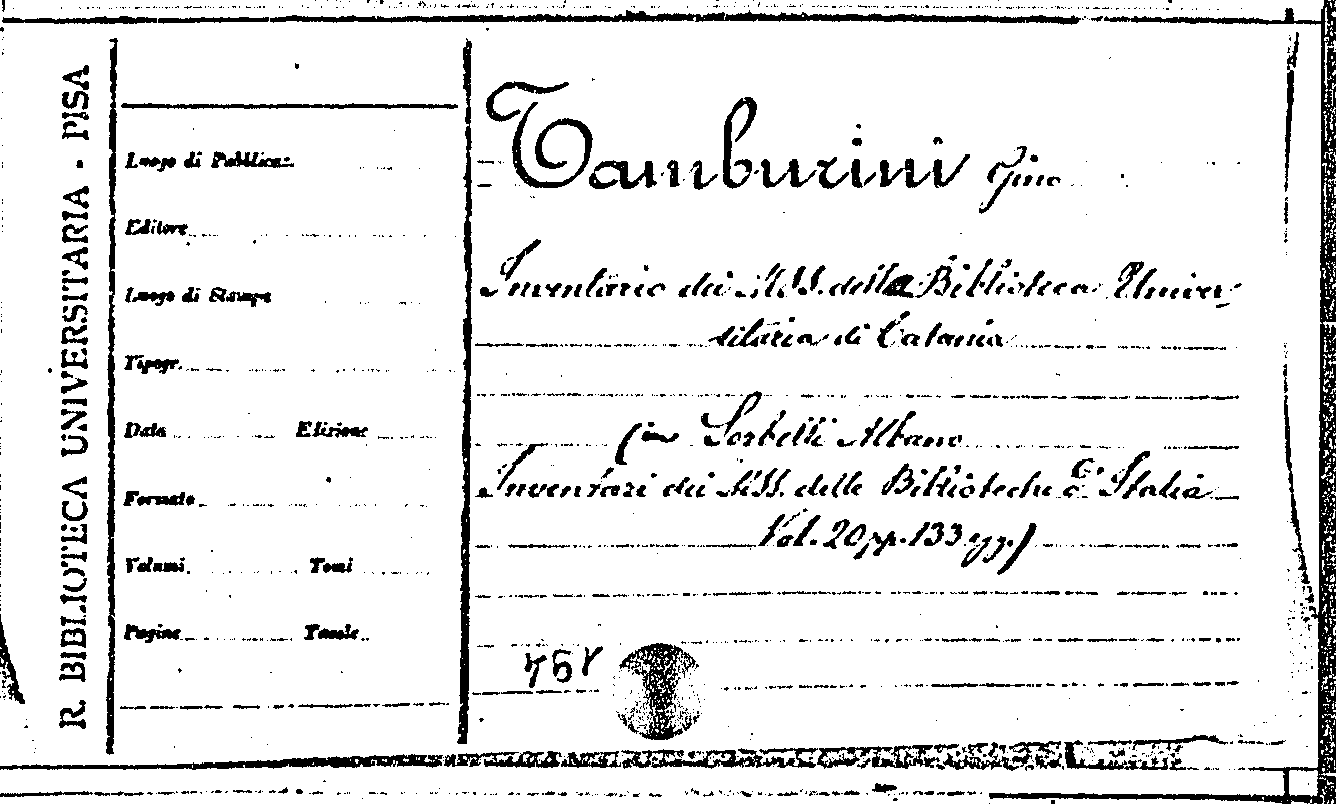 R. BIBLIOTECA UNIVERSITARIA - PISA
Luogo di Pubblicaz.
Editore
Luogo di Stampa
Tipogr.
Data Edizione
Formato
Volumi Tomi
Pagine Tavole
Tamburini Gino
Inventario dei MSS. della Biblioteca Univer-
sitaria di Catania
(in Sorbelli Albano
Inventari dei MSS. delle Biblioteche d'Italia
Vol. 20 pp. 133 sgg.)